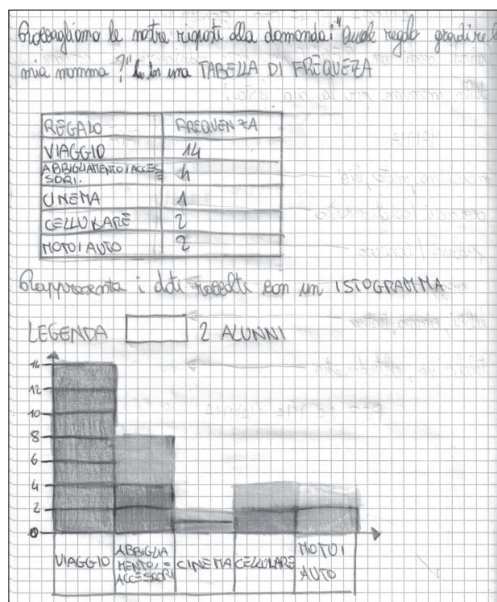 Raccogliamo le nostre risposte alla domanda: "Quale regalo gradirebbe
mia mamma?" con una TABELLA DI FREQUEZA
REGALO FREQUENZA
VIAGGIO 14
ABBIGLIAMENTO/ACCES
SORI. 4
CINEMA 1
CELLULARE 2
MOTO/AUTO 2
Rappresenta i dati raccolti con un ISTOGRAMMA
LEGENDA 2 ALUNNI
14
12
10
8
6
4
2
0
VIAGGIO ABBIGLIA
MENTO/=
ACCESSORI CINEMA CELLULARE MOTO/
AUTO